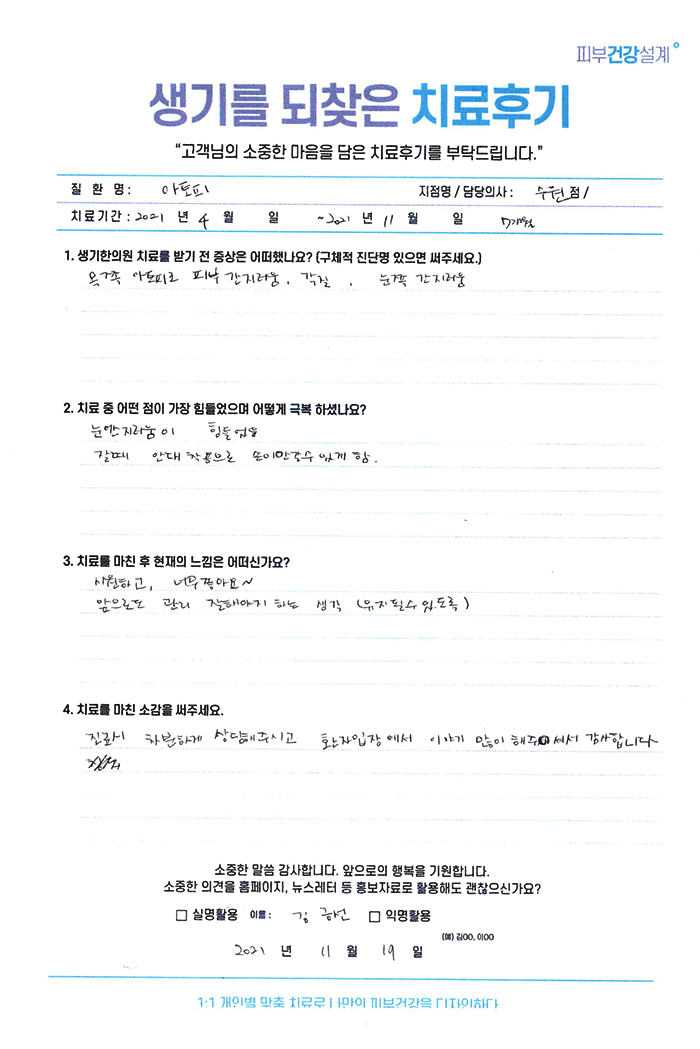 피부건강설계
생기를 되찾은 치료후기
“고객님의 소중한 마음을 담은 치료후기를 부탁드립니다.”
질 환 명 : 아토피 지점명 / 담당의사 : 수원점 /
치료기간 : 2021 년 4 월 일 ~ 2021 년 11 월 일 7개월
1. 생기한의원 치료를 받기 전 증상은 어떠했나요? (구체적 진단명 있으면 써주세요.)
아토피로 피부 간지러움, 각질, 눈쪽 간지러움
2. 치료 중 어떤 점이 가장 힘들었으며 어떻게 극복 하셨나요?
힘들었음
잘때 안대 착용으로 손이만갈수 있게 함.
3. 치료를 마친 후 현재의 느낌은 어떠신가요?
시원하고, 너무좋아요~
앞으로도 관리 잘해야지 하는 생각 (유지될수 있도록)
4. 치료를 마친 소감을 써주세요.
진료시 차분하게 상담해주시고 환자입장에서 이야기 많이 해주셔서 감사합니다
소중한 말씀 감사합니다. 앞으로의 행복을 기원합니다.
소중한 의견을 홈페이지, 뉴스레터 등 홍보자료로 활용해도 괜찮으신가요?
□ 실명활용 이름 : 김 □ 익명활용
(예) 김OO, 이OO
2021 년 11 월 19 일
1:1 개인별 맞춤 치료로 나만의 피부건강을 디자인하다